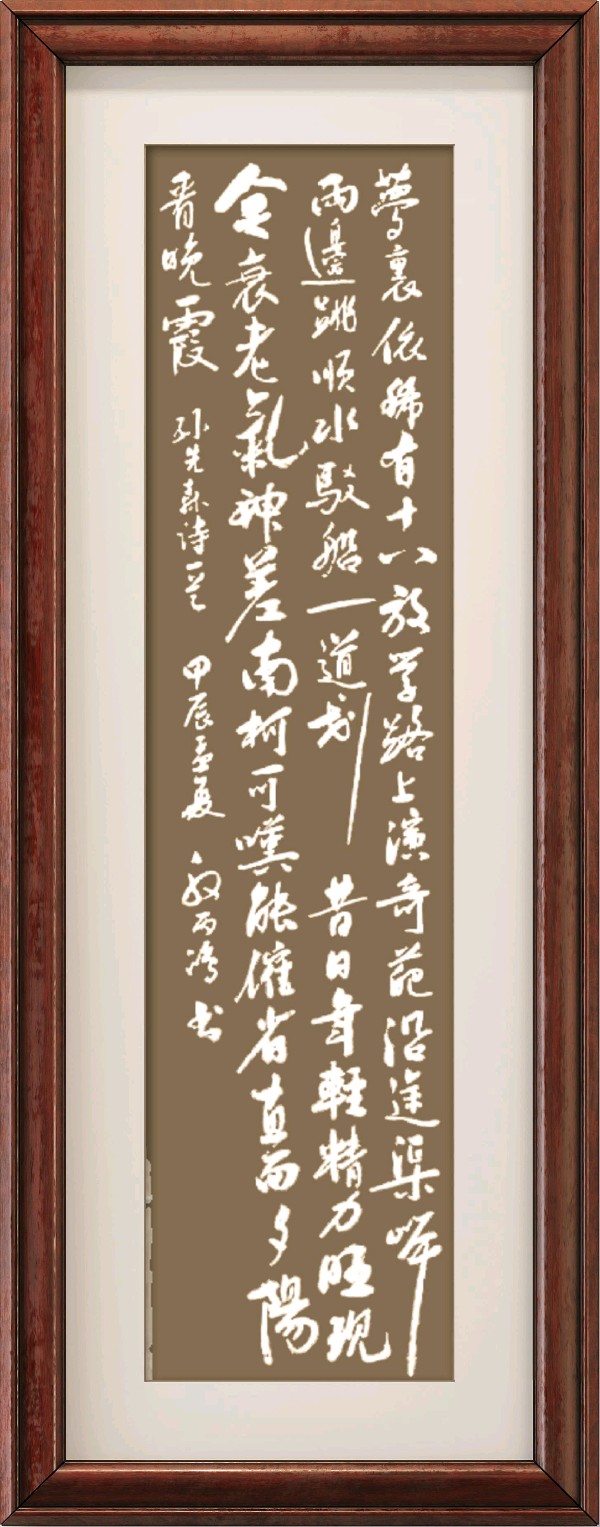 夢裏依稀有十八放学路上演奇葩沿途渠岸
兩邊跳順水駁船一道划 昔日年輕精力旺現
今衰老氣神差南柯可嘆能催省直面夕陽
看晚霞 孙先森诗一首 甲辰孟夏 殷丙鴻书